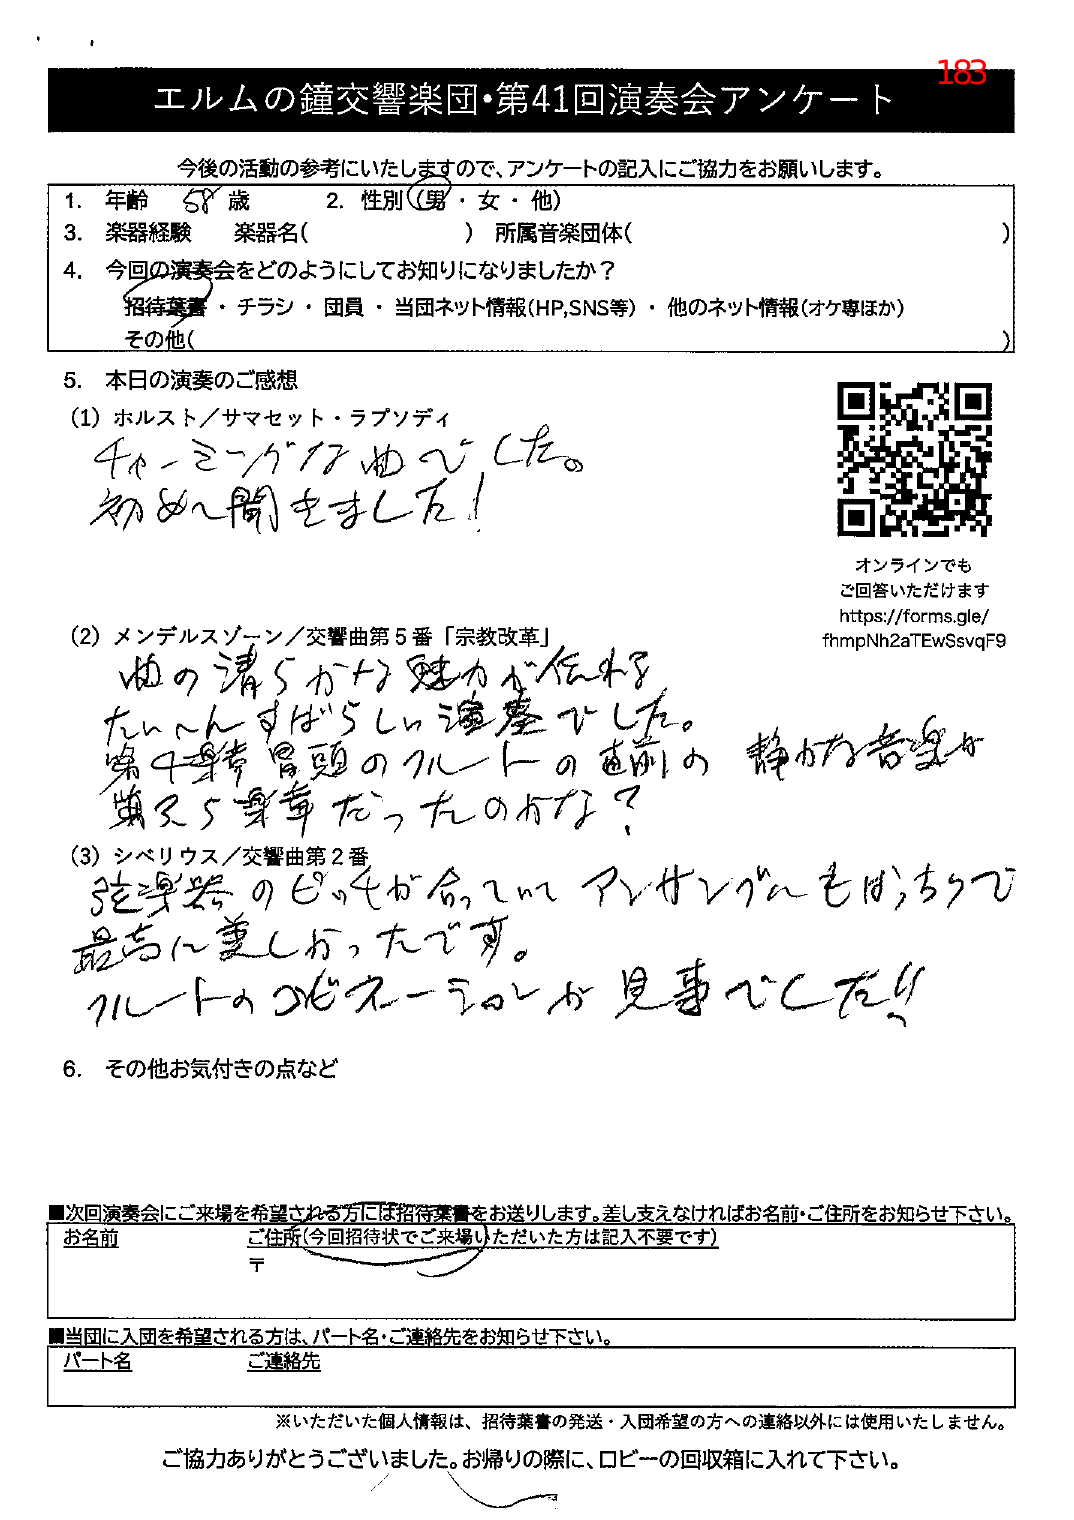 183
エルムの鐘交響楽団・第41回演奏会アンケート
今後の活動の参考にいたしますので、アンケートの記入にご協力をお願いします。
1. 年齢 58 歳 2. 性別(男・女・他)
3. 楽器経験 楽器名( ) 所属音楽団体( )
4. 今回の演奏会をどのようにしてお知りになりましたか?
招待葉書・チラシ・団員・当団ネット情報(HP,SNS等)・他のネット情報(オケ専ほか)
その他( )
5. 本日の演奏のご感想
(1) ホルスト/サマセット・ラプソディ
チャーミングな曲でした。
初めて聞きました!
オンラインでも
ご回答いただけます
https://forms.gle/
fhmpNh2aTEwSsvqF9
(2) メンデルスゾーン/交響曲第5番「宗教改革」
曲の清らかな魅力が伝わる
たいへんすばらしい演奏でした。
第4楽章冒頭のフルートの直前の 静かな音楽が
第3.5楽章だったのかな?
(3) シベリウス/交響曲第2番
弦楽器のピッチが合っていて アンサンブルもばっちりで
最高に美しかったです。
フルートのコンビネーションが見事でした!!
6. その他お気付きの点など
■次回演奏会にご来場を希望される方には招待葉書をお送りします。差し支えなければお名前・ご住所をお知らせ下さい。
お名前 ご住所(今回招待状でご来場いただいた方は記入不要です)
〒
■当団に入団を希望される方は、パート名・ご連絡先をお知らせ下さい。
パート名 ご連絡先
※いただいた個人情報は、招待葉書の発送・入団希望の方への連絡以外には使用いたしません。
ご協力ありがとうございました。お帰りの際に、ロビーの回収箱に入れて下さい。